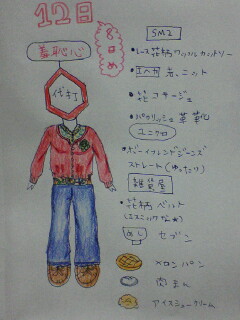 12日
8日め
羞恥心
代打
SM2
・レース花柄ワッフルカットソー
・エバカ 赤ニット
・花コサージュ
・パラリッシュ革靴
ユニクロ
・ボーイフレンドジーンズ
ストレート(ゆったり)
雑貨屋
・花柄ベルト
(エスニックな★)
めし
セブン
メロンパン
肉まん
アイスシュークリーム